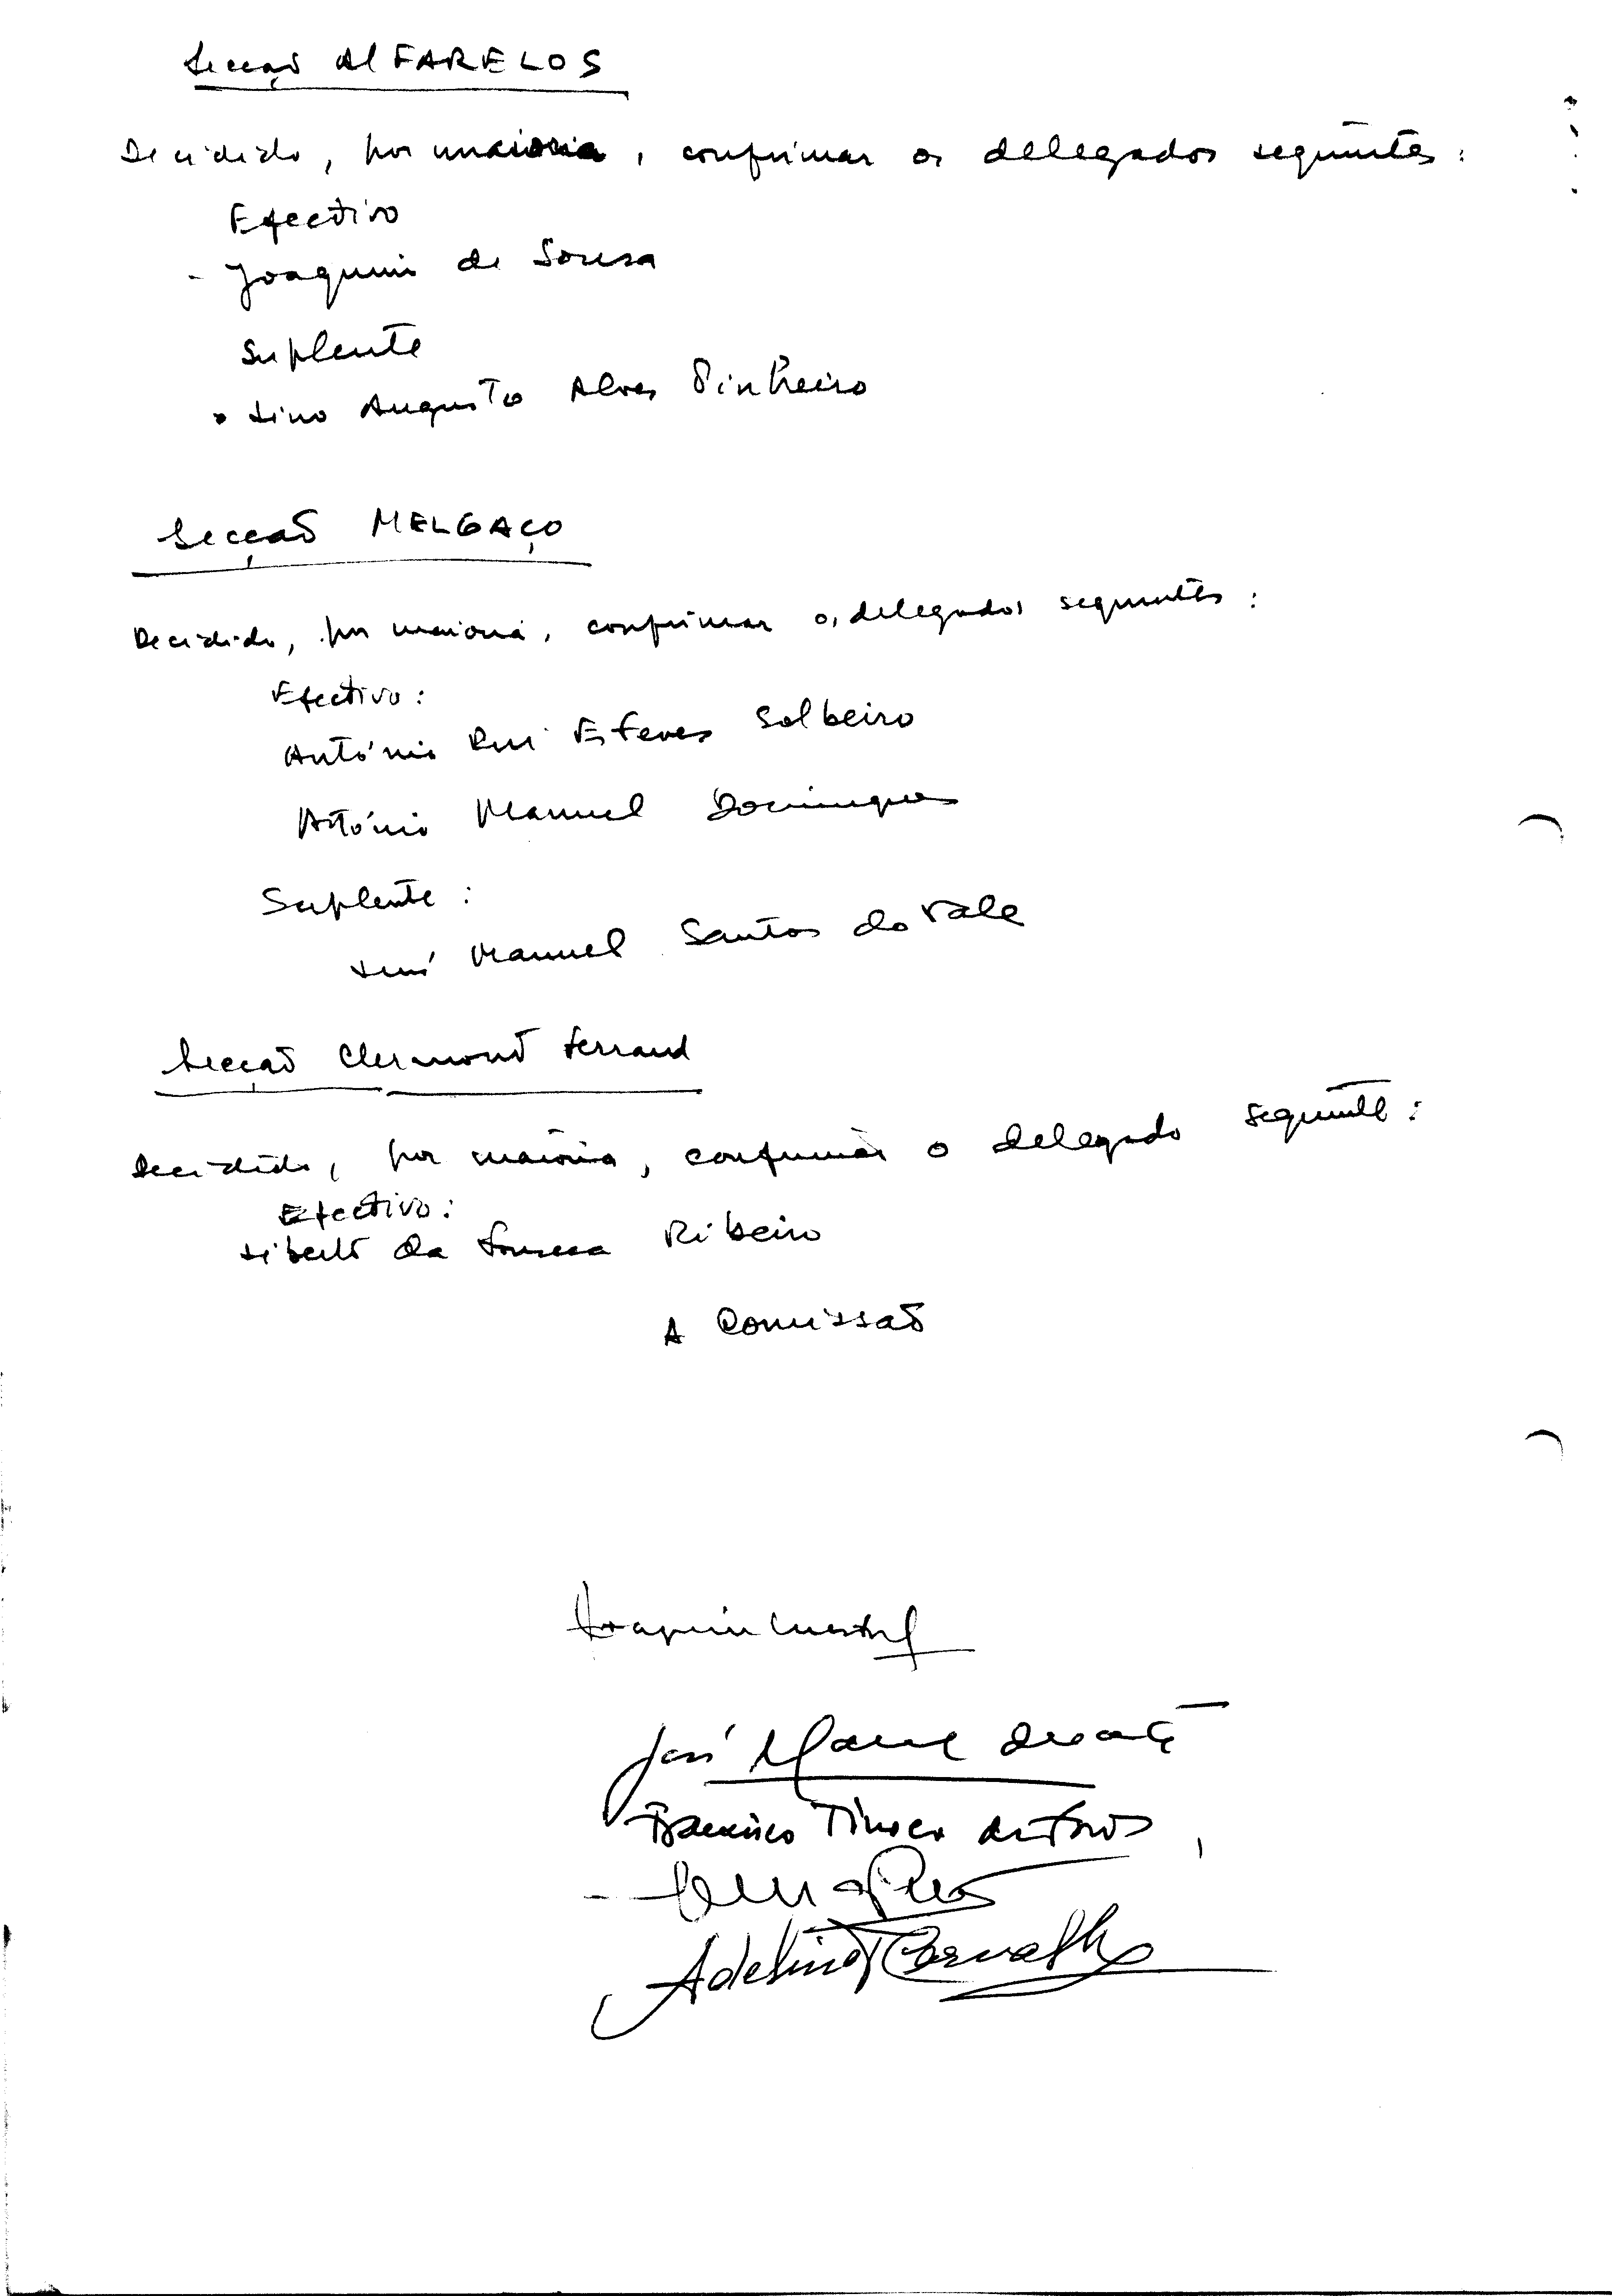 Secção AlFARELOS
Decidido, por maioria, confirmar os delegados seguintes:
Efectivo
- Joaquim de Sousa
Suplente
- Lino Augusto Alves Pinheiro
Secção MELGAÇO
Decidido, por maioria, confirmar os delegados seguintes:
Efectivo:
António Rui Esteves Solheiro
António Manuel Domingues
Suplente:
Luís Manuel Santos do Vale
Secção Clermont Ferrand
Decidido, por maioria, confirmar o delegado seguinte:
Efectivo:
Liberto da Fonseca Ribeiro
A Comissão
Joaquim
José Manuel Duarte
Francisco Tinoco
Adelino Carvalho